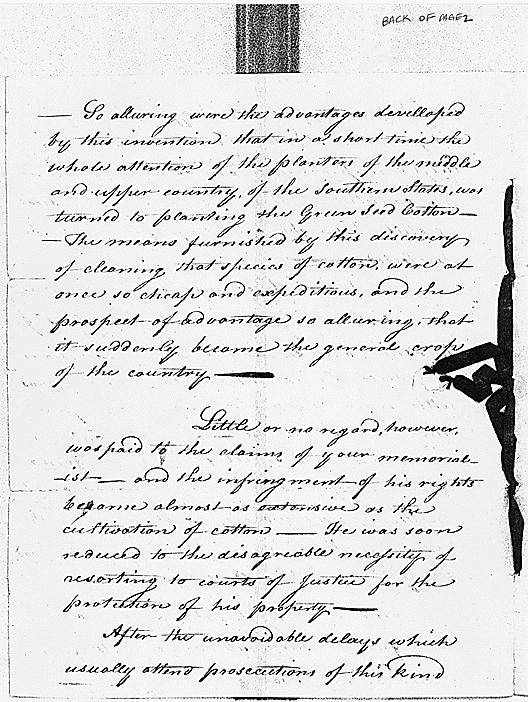 BACK OF PAGE 2
— So alluring were the advantages developed
by this invention that in a short time the
whole attention of the planters of the middle
and upper country, of the Southern States, was
turned to planting the Green Seed Cotton —
— The means furnished by this discovery
of cleaning that species of cotton, were at
once so cheap and expeditious, and the
prospect of advantage so alluring, that
it suddenly became the general crop
of the country —
Little or no regard, however,
was paid to the claims of your memorial-
-ist — and the infringment of his rights
became almost as extensive as the
cultivation of cotton — He was soon
reduced to the disagreable necessity of
resorting to courts of Justice for the
protection of his property —
After the unavoidable delays which
usually attend prosecutions of this kind